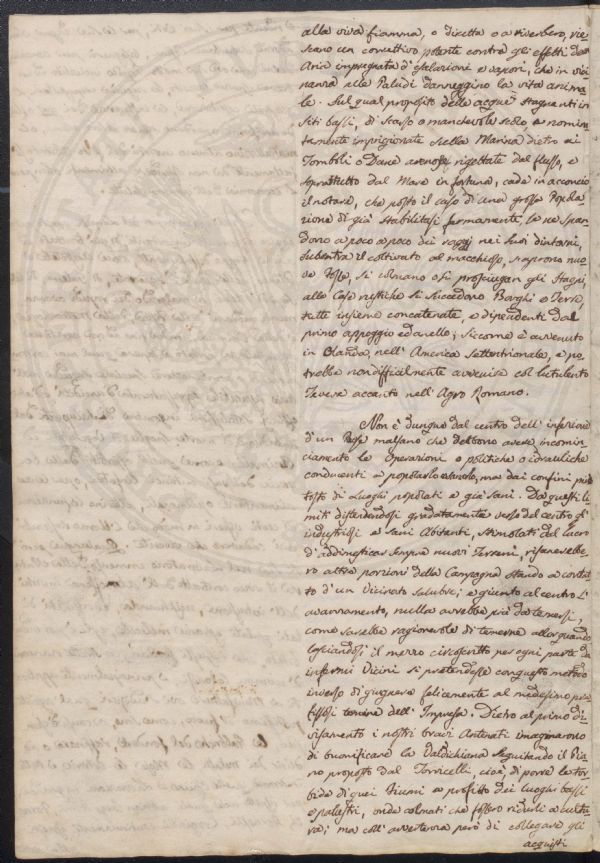 alla viva fiamma, o diretta o a riverbero, rie-
scano un correttivo potente contro gli effetti dell'
Aria impregnata d'esalazioni e vapori, che in vici
nanza alle Paludi danneggino la vita anima
le. Sul qual proposito delle acque stagnanti in
siti bassi, di scarso o manchevole scolo, e nomina
tamente imprigionate della Marina dietro ai
Tomboli o Dune arenose rigettate dal flusso, e
soprattutto dal Mare in fortuna, cade in acconcio
il notare, che posto il caso di una grossa Popola
zione di già stabilitasi fermamente, se ne span
dono a poco a poco dei raggi nei suoi dintorni,
subentra il coltivato al macchioso, si aprono nuo
ve Fosse, si colmano o si prosciugan gli Stagni,
alle Case rustiche si succedono Borghi e Terre,
tutte insieme concatenate, e dipendenti dal
primo appoggio ed anello; siccome è avvenuto
in Olanda, nell'America Settentrionale, e po
trebbe non difficilmente avvenire col lutulento
Tevere accanto nell'Agro Romano.
Non è dunque dal centro dell'inferiore
d'un Paese malsano che debbono avere incomin
ciamento le operazioni o politiche o idrauliche
conducenti a popolarlo e sanarlo, ma dai confini piut
tosto di Luoghi popolati e già sani. Da questi li
miti distendendosi gradatamente verso del centro gl'
industriosi e sani Abitanti, stimolati dal lucro
d'addimesticar sempre nuovi Terreni, risanerebbe
ro altre porzioni della Campagna stando a contat
to d'un Vicinato salubre; e giunto al centro l'
avanzamento, nulla avrebbe più da temersi,
come sarebbe ragionevole di temerne allorquando
lasciandosi il mezzo circoscritto per ogni parte da
infermi Vicini si pretendesse con questo metodo
inverso di giugnere felicemente al medesimo pre
fissosi termine dell'Impresa. Dietro al primo di
visamento i nostri bravi Antenati immaginarono
di buonificare la Valdichiana seguitando il Pia
no proposto dal Torricelli, cioè di porre le tor
bide di quei Fiumi a profitto dei luoghi bassi
e palustri, onde colmati che fossero ridurli a cultu
ra; ma coll'avvertenza però di collegare gli
acquisti